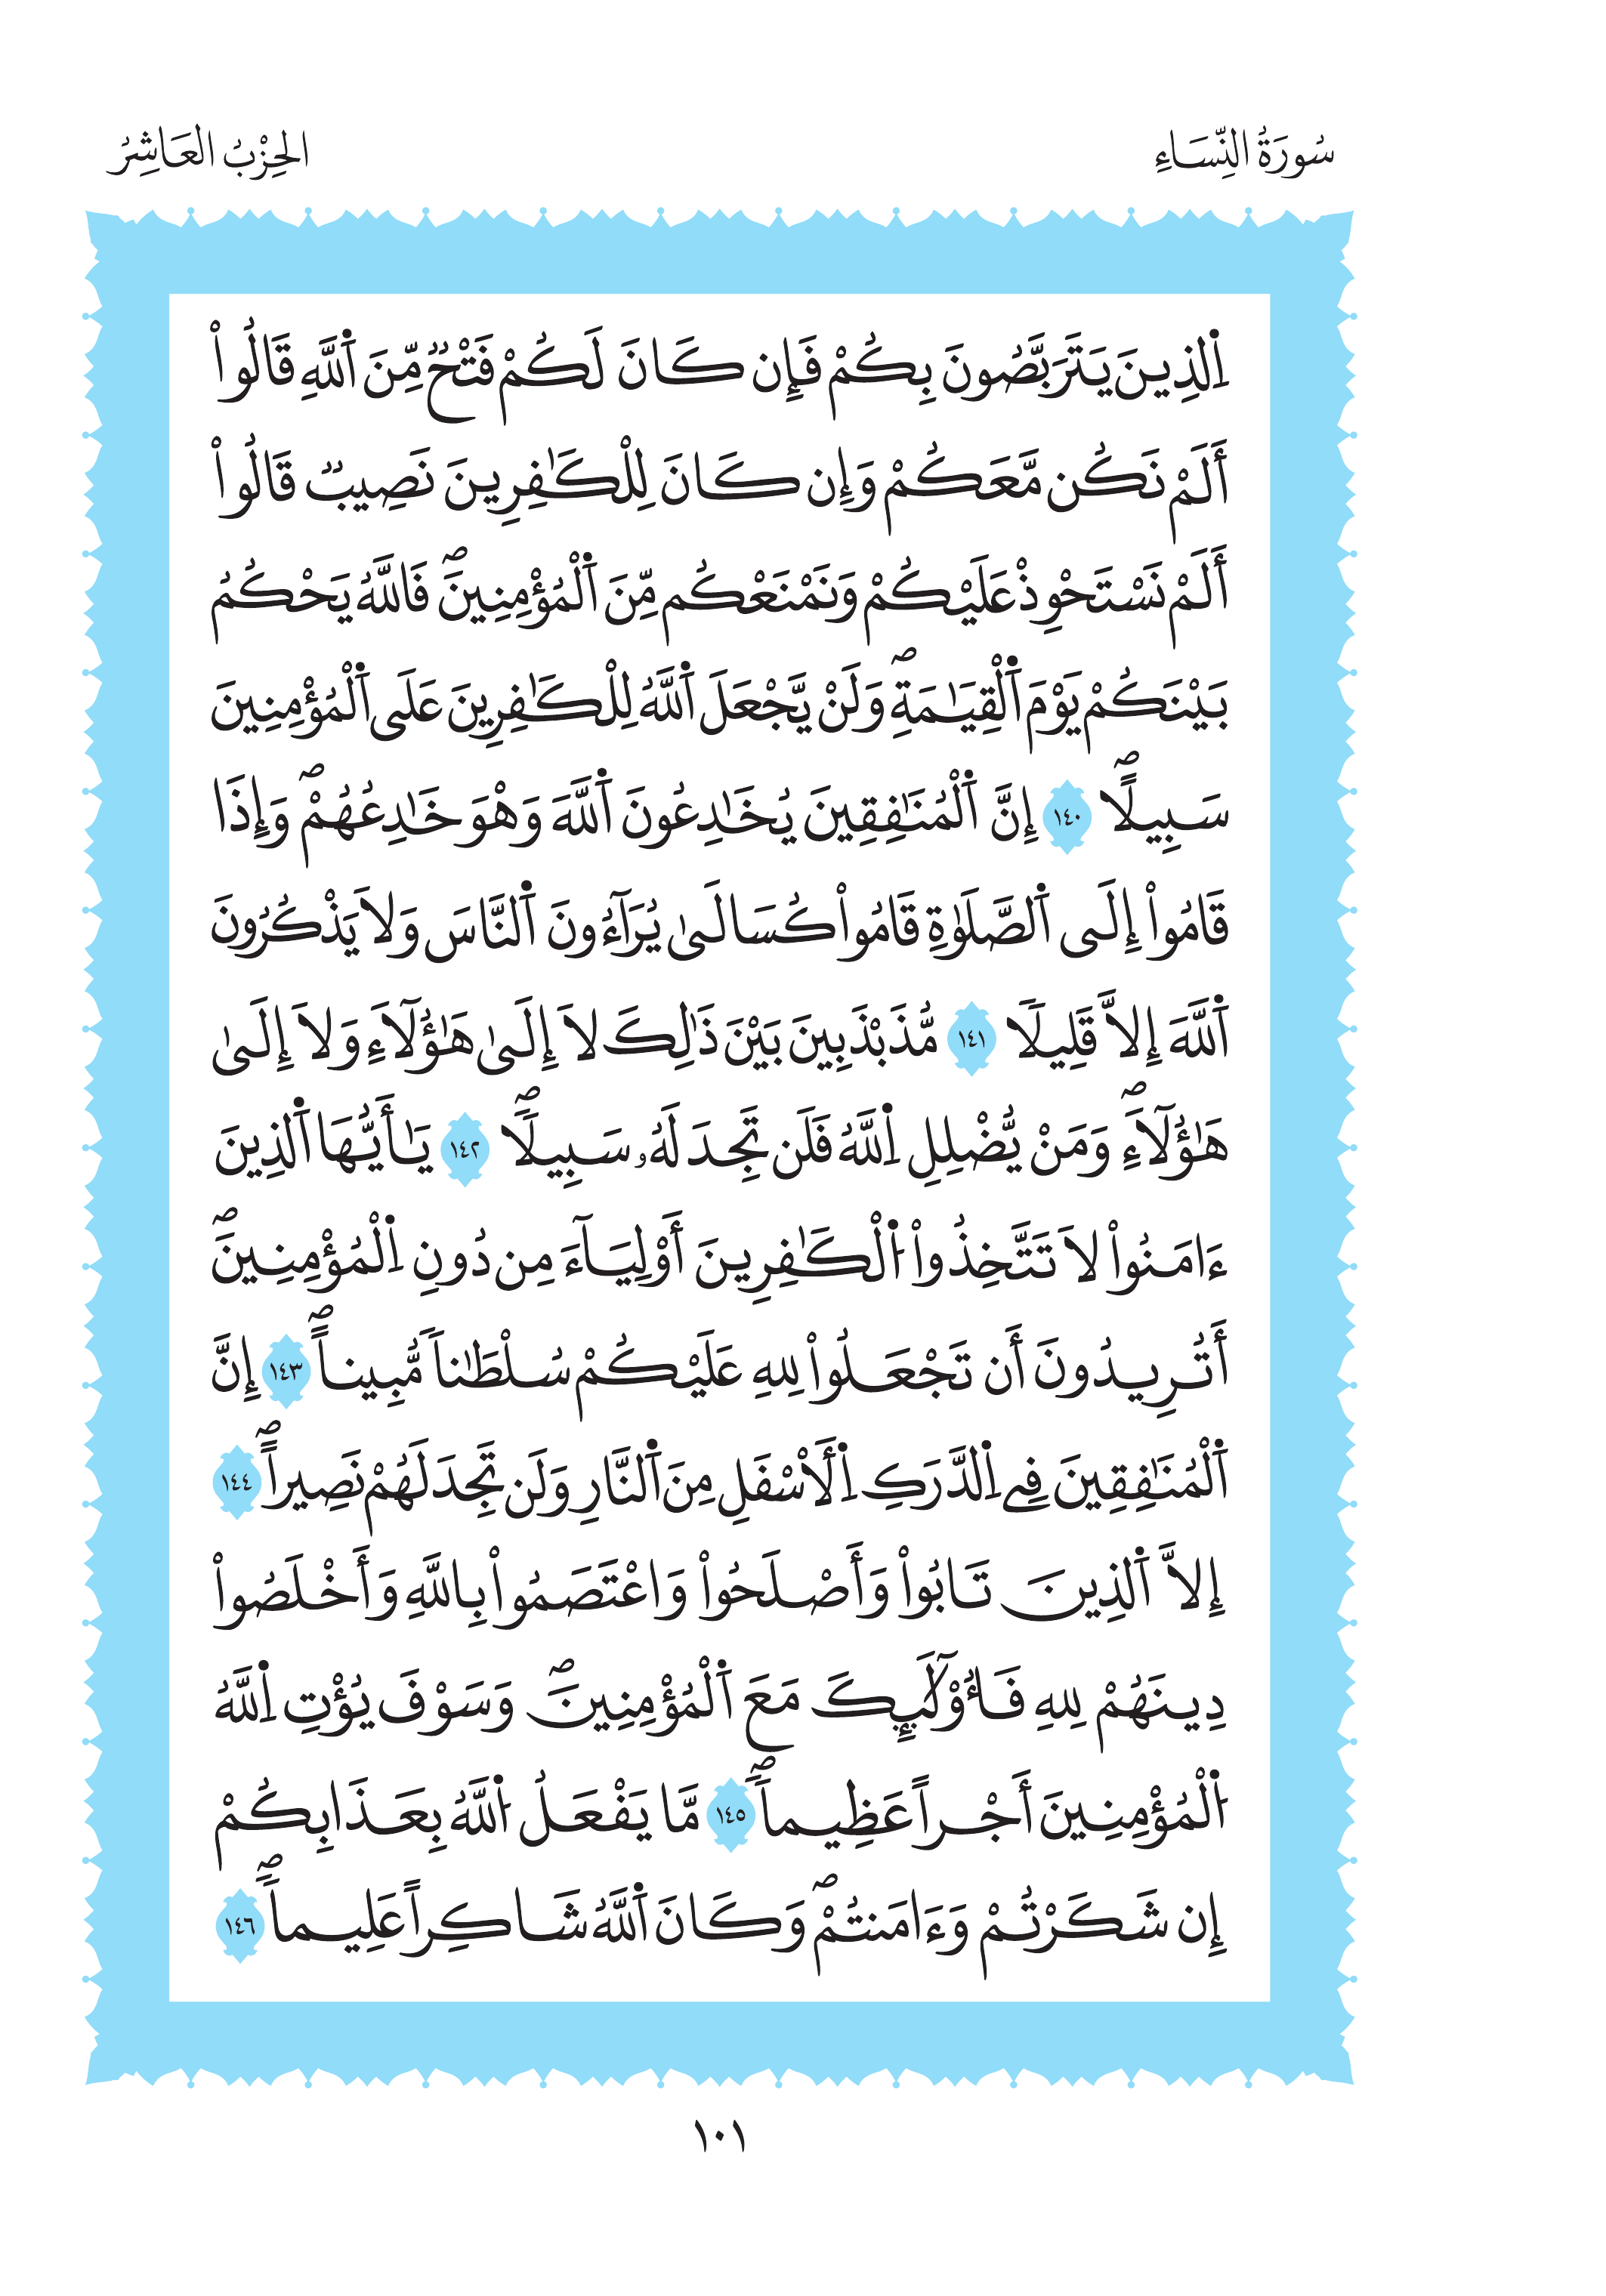 سُورَةُ النِّسَاءِ
الحِزْبُ العَاشِرُ
اِ۬لذِينَ يَتَرَبَّصُونَ بِكُمْ فَإِن كَانَ لَكُمْ فَتْحٌ مِّنَ اَ۬للَّهِ قَالُواْ
أَلَمْ نَكُن مَّعَكُمْ وَإِن كَانَ لِلْكَٰفِرِينَ نَصِيبٌ قَالُواْ
أَلَمْ نَسْتَحْوِذْ عَلَيْكُمْ وَنَمْنَعْكُم مِّنَ اَ۬لْمُؤْمِنِينَۖ فَاللَّهُ يَحْكُمُ
بَيْنَكُمْ يَوْمَ اَ۬لْقِيَٰمَةِۖ وَلَنْ يَّجْعَلَ اَ۬للَّهُ لِلْكَٰفِرِينَ عَلَى اَ۬لْمُؤْمِنِينَ
سَبِيلًاۖ ١٤٠ إِنَّ اَ۬لْمُنَٰفِقِينَ يُخَٰدِعُونَ اَ۬للَّهَ وَهْوَ خَٰدِعُهُمْۖ وَإِذَا
قَامُواْ إِلَى اَ۬لصَّلَوٰةِ قَامُواْ كُسَالَىٰ يُرَآءُونَ اَ۬لنَّاسَ وَلَا يَذْكُرُونَ
اَ۬للَّهَ إِلَّا قَلِيلًا ١٤١ مُّذَبْذَبِينَ بَيْنَ ذَٰلِكَ لَا إِلَىٰ هَٰؤُلَآءِ وَلَا إِلَىٰ
هَٰؤُلَآءِۖ وَمَنْ يُّضْلِلِ اِ۬للَّهُ فَلَن تَجِدَ لَهُۥ سَبِيلًاۖ ١٤٢ يَٰأَيُّهَا اَ۬لذِينَ
ءَامَنُواْ لَا تَتَّخِذُواْ اُ۬لْكَٰفِرِينَ أَوْلِيَآءَ مِن دُونِ اِ۬لْمُؤْمِنِينَۖ
أَتُرِيدُونَ أَن تَجْعَلُواْ لِلهِ عَلَيْكُمْ سُلْطَٰناً مُّبِيناًۖ ١٤٣ إِنَّ
اَ۬لْمُنَٰفِقِينَ فِے اِ۬لدَّرَكِ اِ۬لْأَسْفَلِ مِنَ اَ۬لنَّارِ وَلَن تَجِدَ لَهُمْ نَصِيراًۖ ١٤٤
إِلَّا اَ۬لذِينَ تَابُواْ وَأَصْلَحُواْ وَاعْتَصَمُواْ بِاللَّهِ وَأَخْلَصُواْ
دِينَهُمْ لِلهِ فَأُوْلَٰٓئِكَ مَعَ اَ۬لْمُؤْمِنِينَۖ وَسَوْفَ يُؤْتِ اِ۬للَّهُ
اُ۬لْمُؤْمِنِينَ أَجْراً عَظِيماًۖ ١٤٥ مَّا يَفْعَلُ اُ۬للَّهُ بِعَذَابِكُمْ
إِن شَكَرْتُمْ وَءَامَنتُمْۖ وَكَانَ اَ۬للَّهُ شَاكِراً عَلِيماًۖ ١٤٦
١٠١